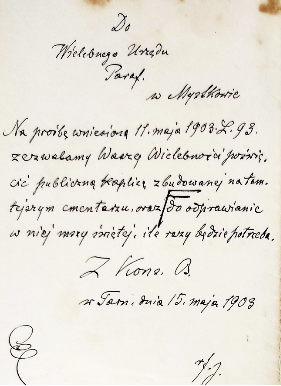 Do
Wielebnego Urzędu
Paraf.
w Mystkowie
Na prośbę wniesioną 11. maja 1903. L. 93.
zezwalamy Waszej Wielebności poświę-
cić publiczną kaplicę zbudowanej na tam-
tejszym cmentarzu, oraz do odprawianie
w niej mszy świętej, ile razy będzie potrzeba.
Z Kons. B.
w Tarn. dnia 15. maja 1903